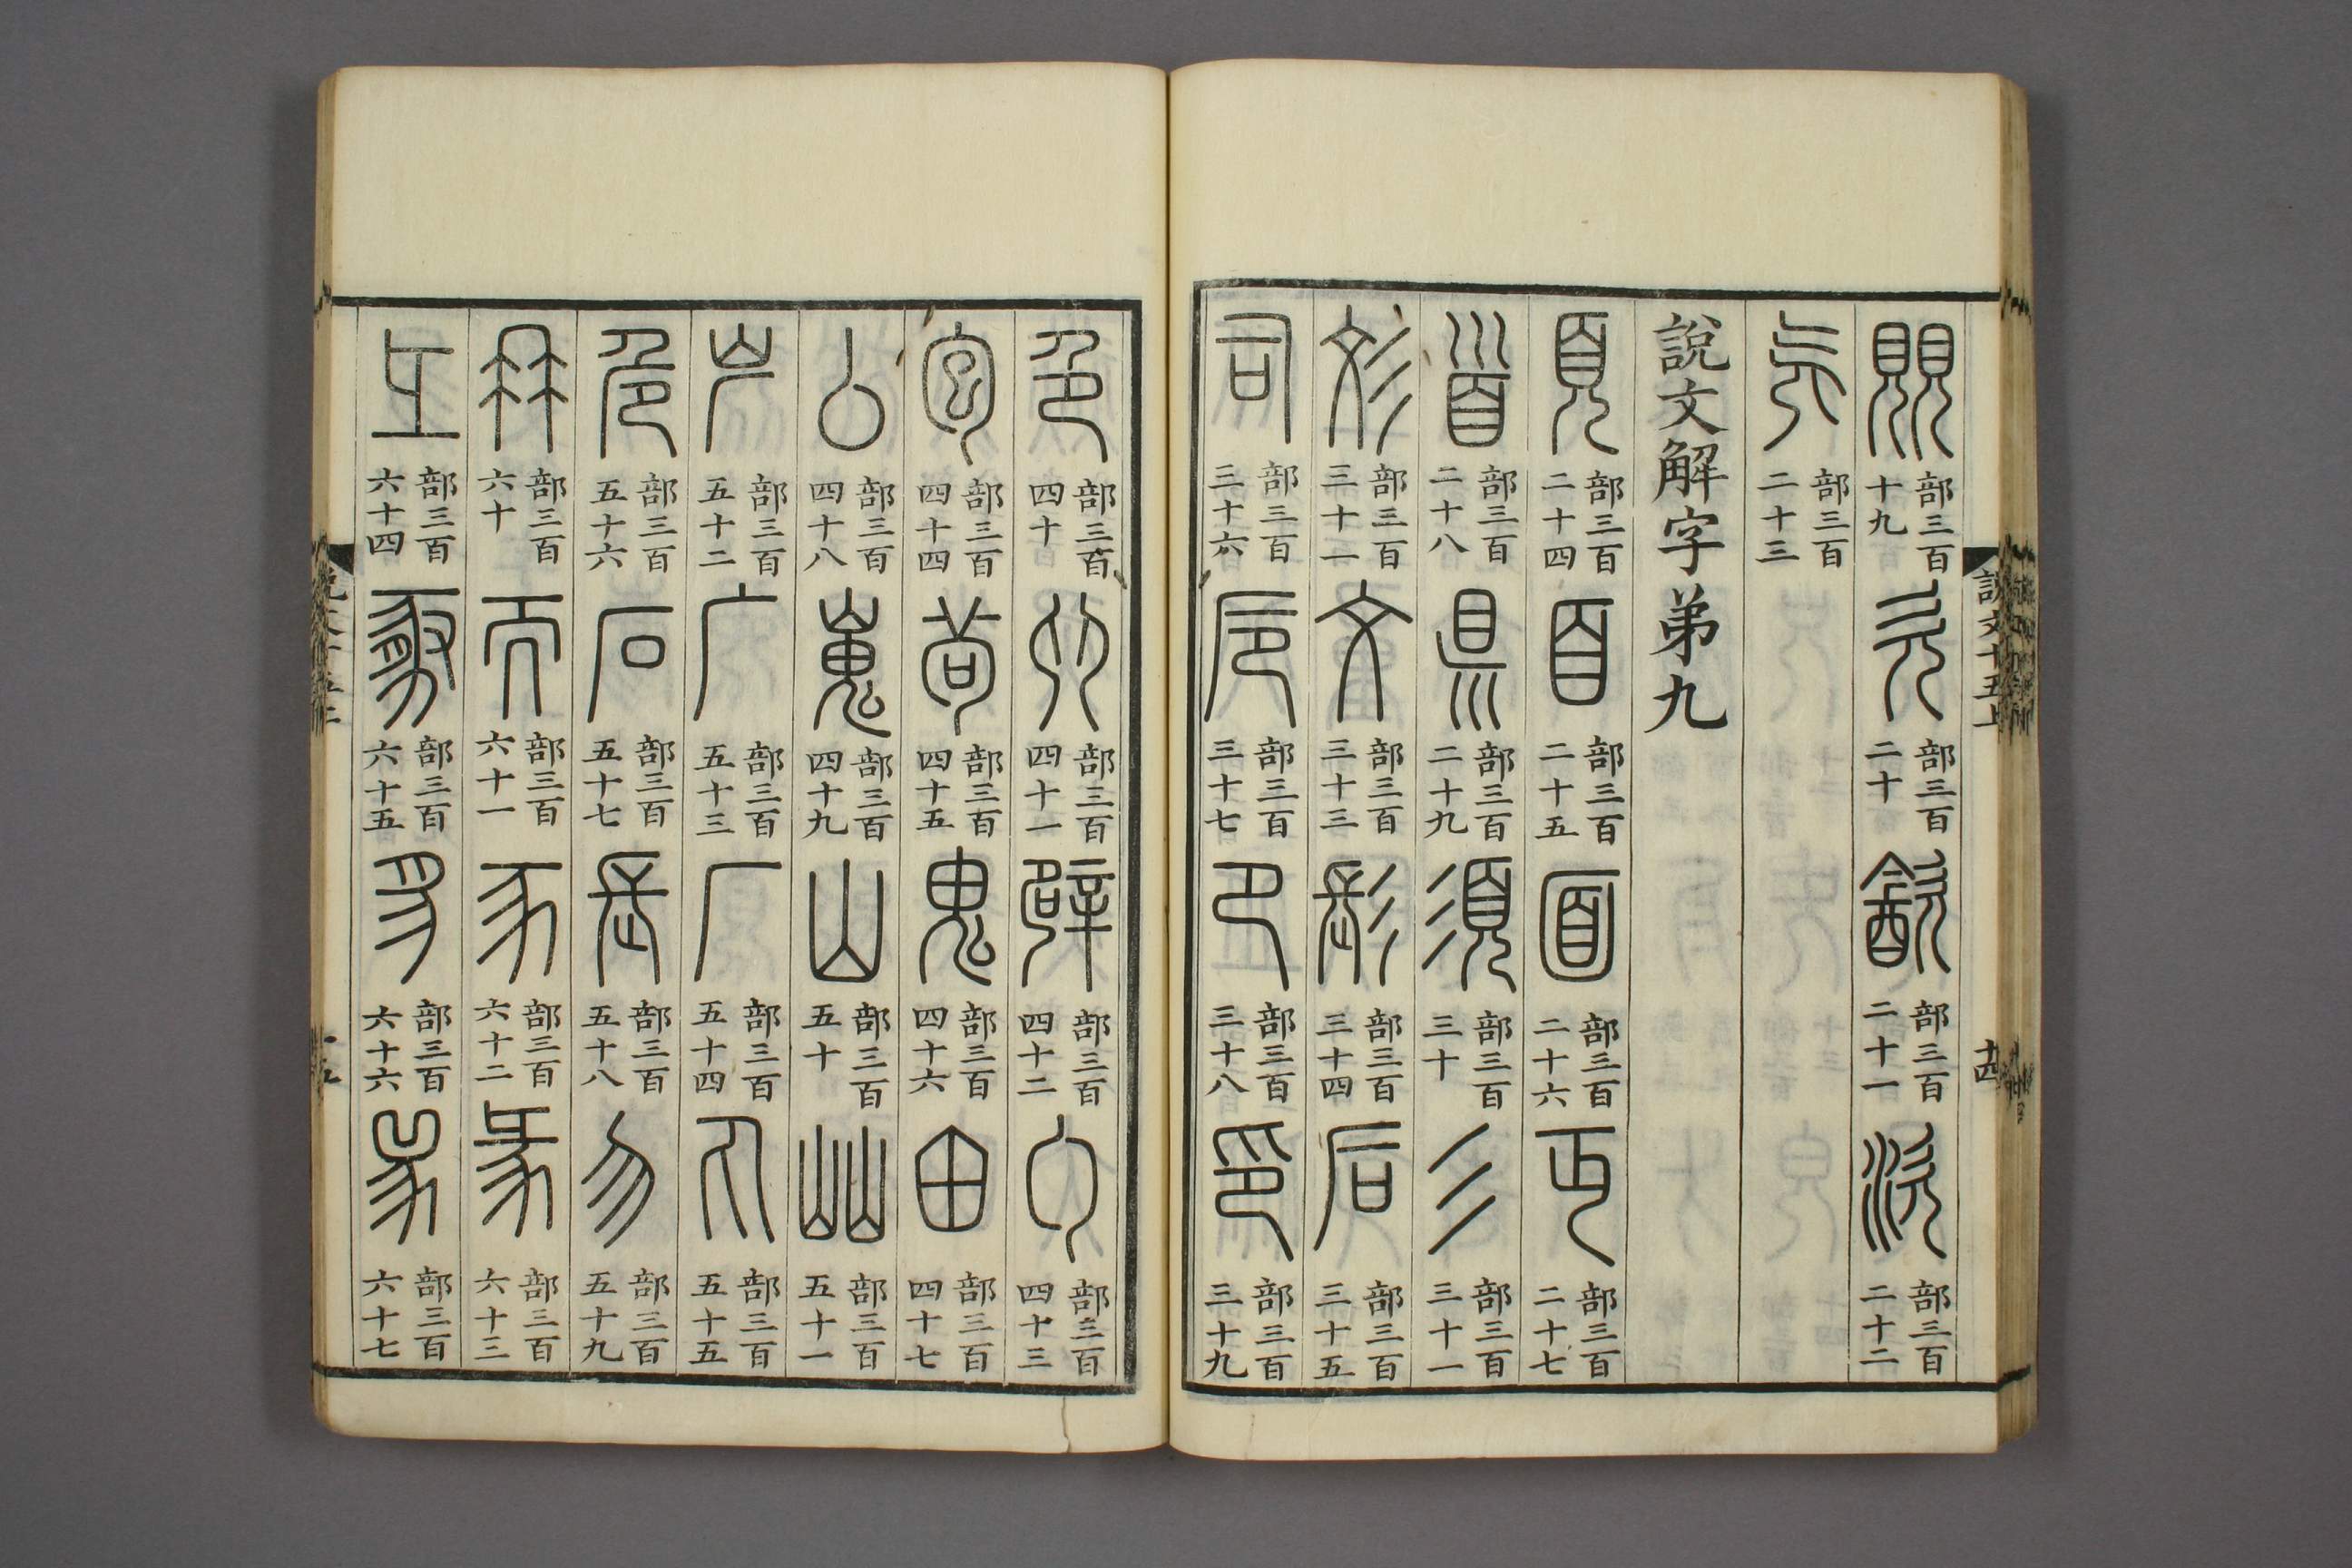 說文十五上 十四
覞部三百十九 欠部三百二十 㱃部三百二十一 㳄部三百二十二
旡部三百二十三
說文解字弟九
頁部三百二十四 𦣻部三百二十五 面部三百二十六 丏部三百二十七
𩠐部三百二十八 𥄉部三百二十九 須部三百三十 彡部三百三十一
彣部三百三十一 文部三百三十三 髟部三百三十四 后部三百三十五
司部三百三十六 卮部三百三十七 卩部三百三十八 印部三百三十九
色部三百四十 𠨍部三百四十一 辟部三百四十二 勹部三百四十三
包部三百四十四 茍部三百四十五 鬼部三百四十六 甶部三百四十七
厶部三百四十八 嵬部三百四十九 山部三百五十 屾部三百五十一
屵部三百五十二 广部三百五十三 厂部三百五十四 丸部三百五十五
危部三百五十六 石部三百五十七 長部三百五十八 勿部三百五十九
冄部三百六十 而部三百六十一 豕部三百六十二 㣇部三百六十三
彑部三百六十四 豚部三百六十五 豸部三百六十六 𤉡部三百六十七